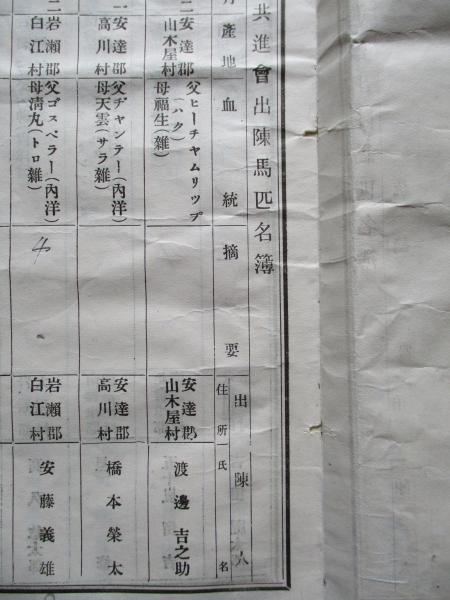 共進會出陳馬匹名簿
產地
血統
摘要
出陳人
住所
氏名
二
安達郡
山木屋村
父ヒーチャムリップ
(ハク)
母福生(雜)
安達郡
山木屋村
渡邊吉之助
一
安達郡
高川村
父ヂャンテー(內洋)
母天雲(サラ雜)
安達郡
高川村
橋本榮太
二
岩瀨郡
白江村
父ゴスペラー(內洋)
母淸丸(トロ雜)
岩瀨郡
白江村
安藤義雄